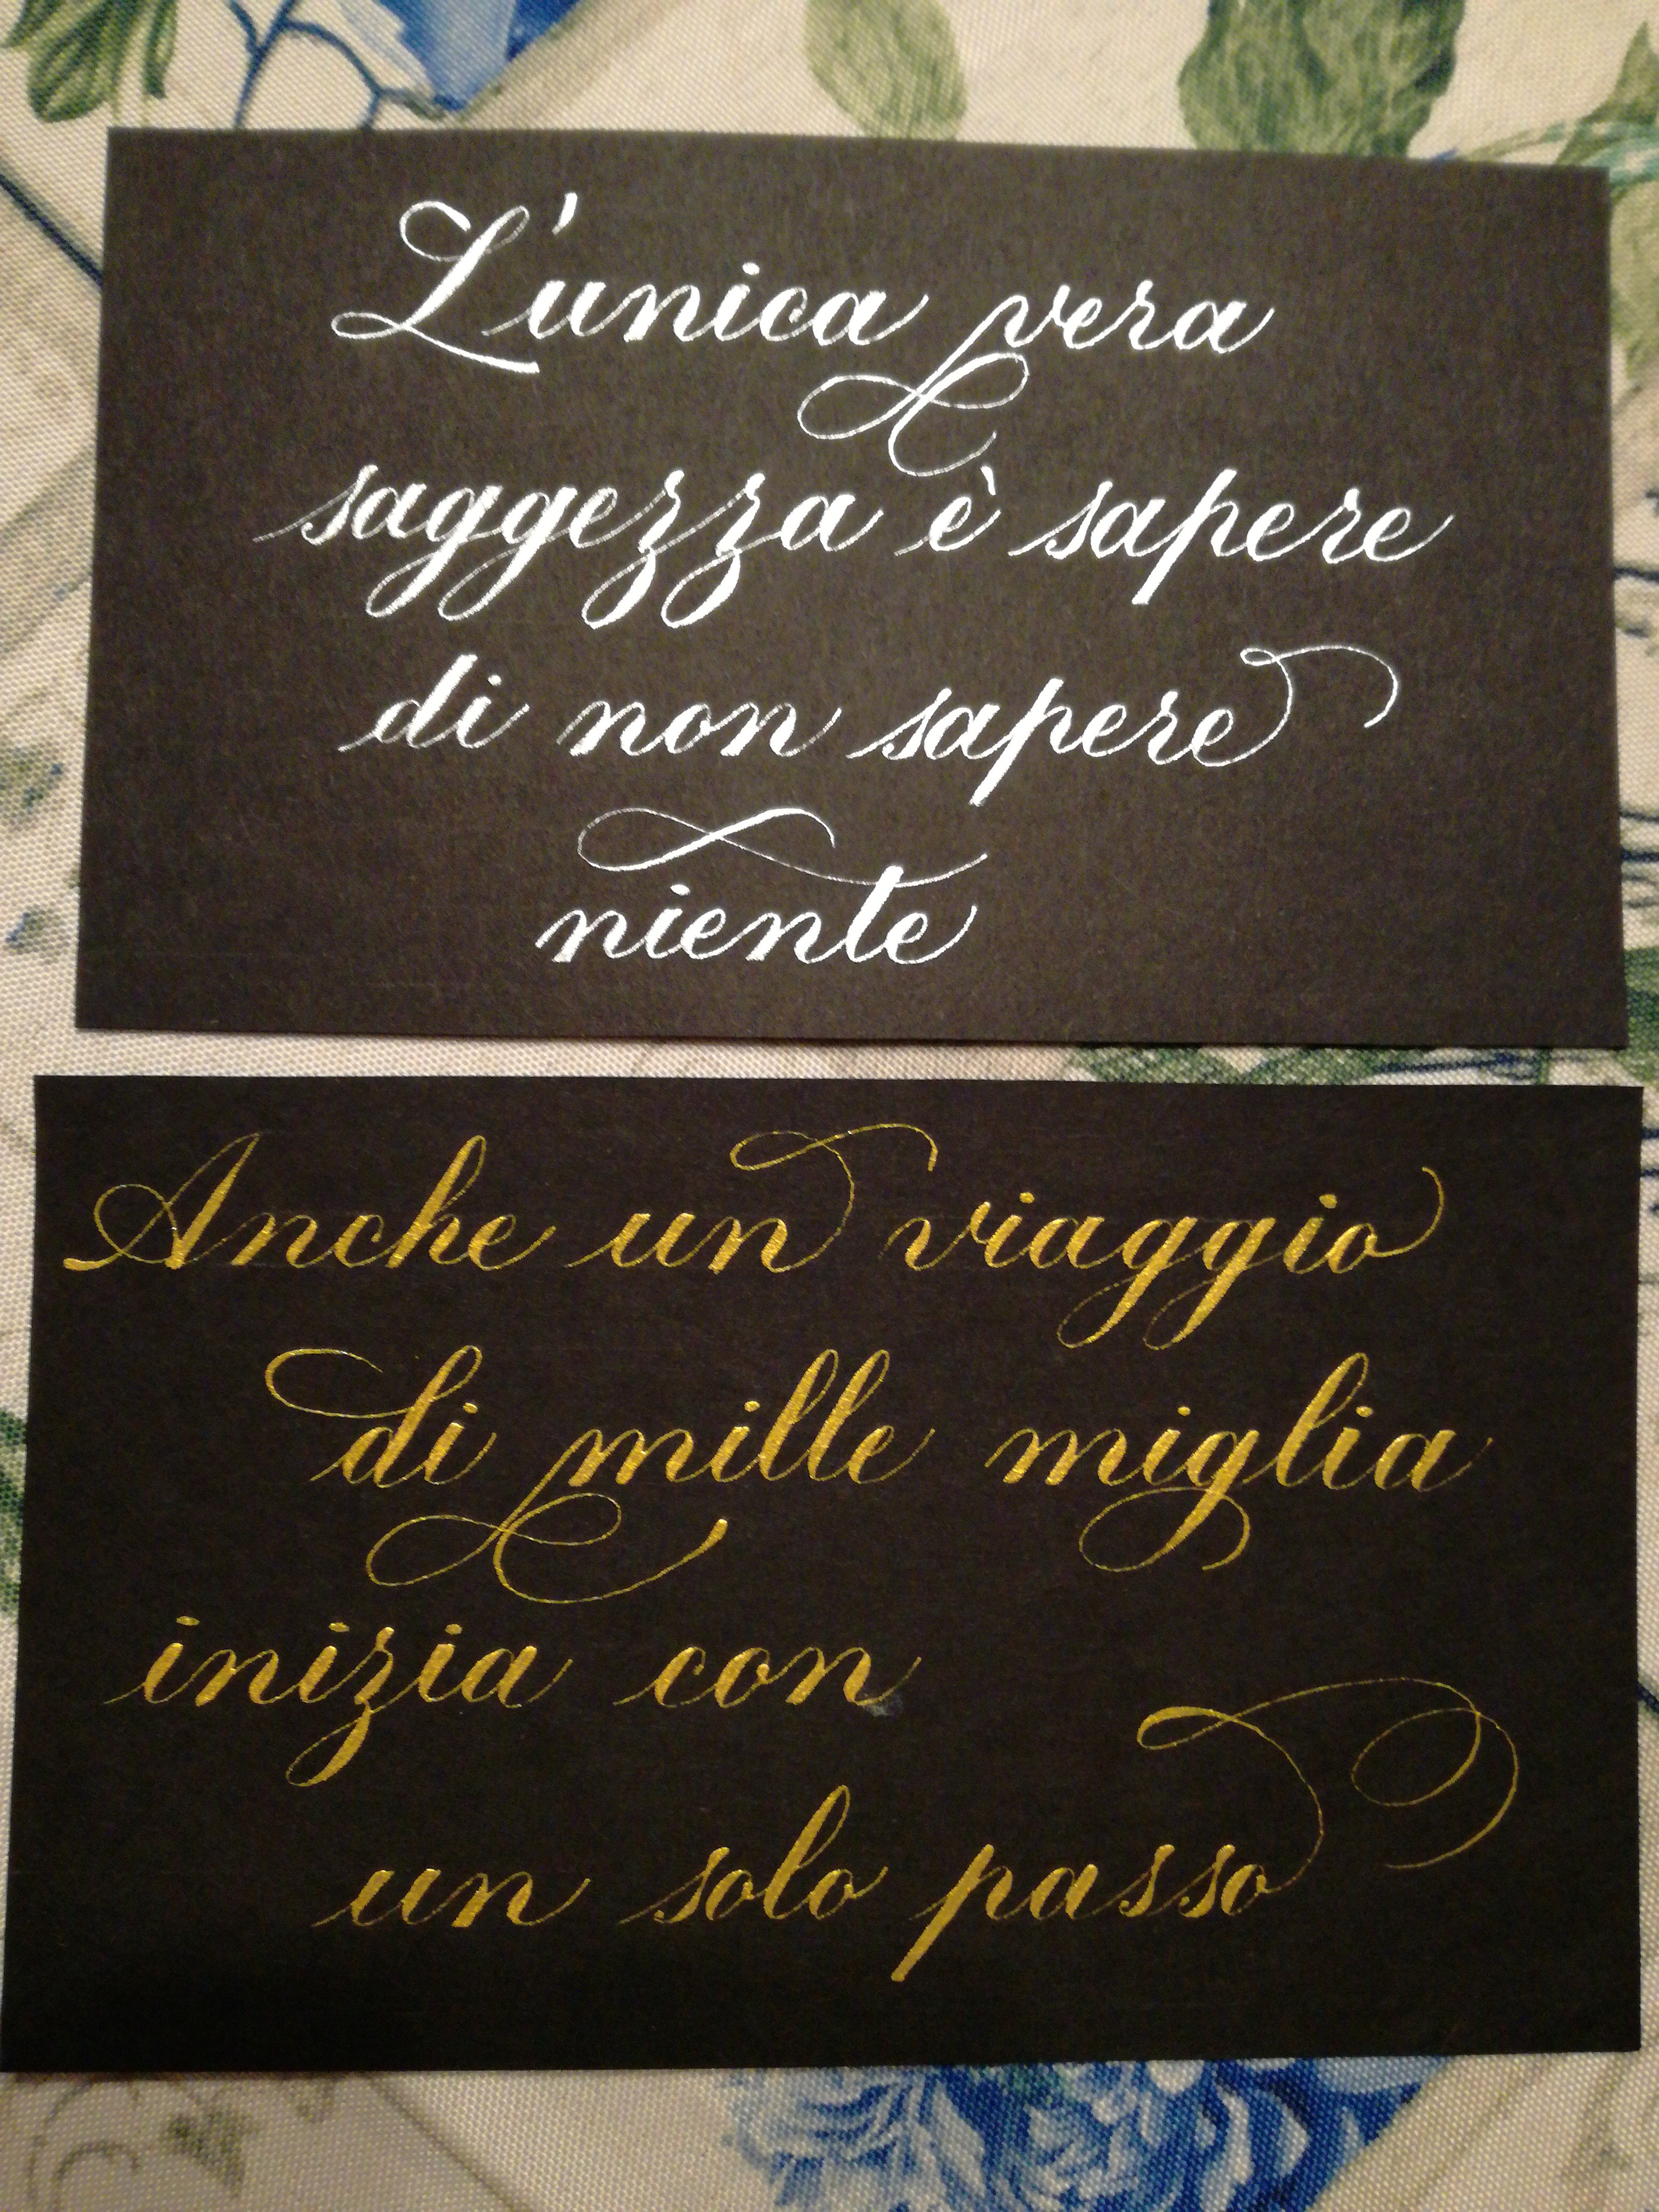 L'unica vera
saggezza è sapere
di non sapere
niente
Anche un viaggio
di mille miglia
inizia con
un solo passo